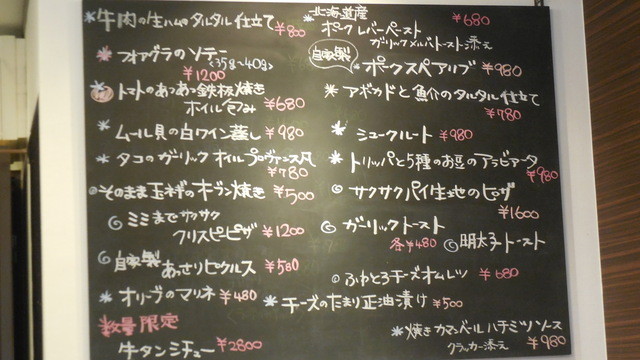 牛肉の生ハムのタルタル仕立て ¥800
フォアグラのソテー
<35g〜40g>
¥1200
トマトのあつあつ鉄板焼き
ホイル包み ¥680
ムール貝の白ワイン蒸し ¥980
タコのガーリックオイルプロヴァンス風
¥780
そのまま玉ネギのオーブン焼き ¥500
ミミまでサクサク
クリスピーピザ ¥1200
自家製 あっさりピクルス ¥580
オリーブのマリネ ¥480
数量限定
牛タンシチュー ¥2800
北海道産
ポークレバーペースト ¥680
ガーリックメルバトースト添え
自家製 ポークスペアリブ ¥980
アボカドと魚介のタルタル仕立て
¥780
シュークルート ¥980
トリッパと5種のお豆のアラビアータ
¥980
サクサクパイ生地のピザ
¥1600
ガーリックトースト
各¥480 明太子トースト
ふわとろチーズオムレツ ¥680
チーズのたまり正油漬け ¥500
焼きカマンベールハチミツソース
クラッカー添え ¥980